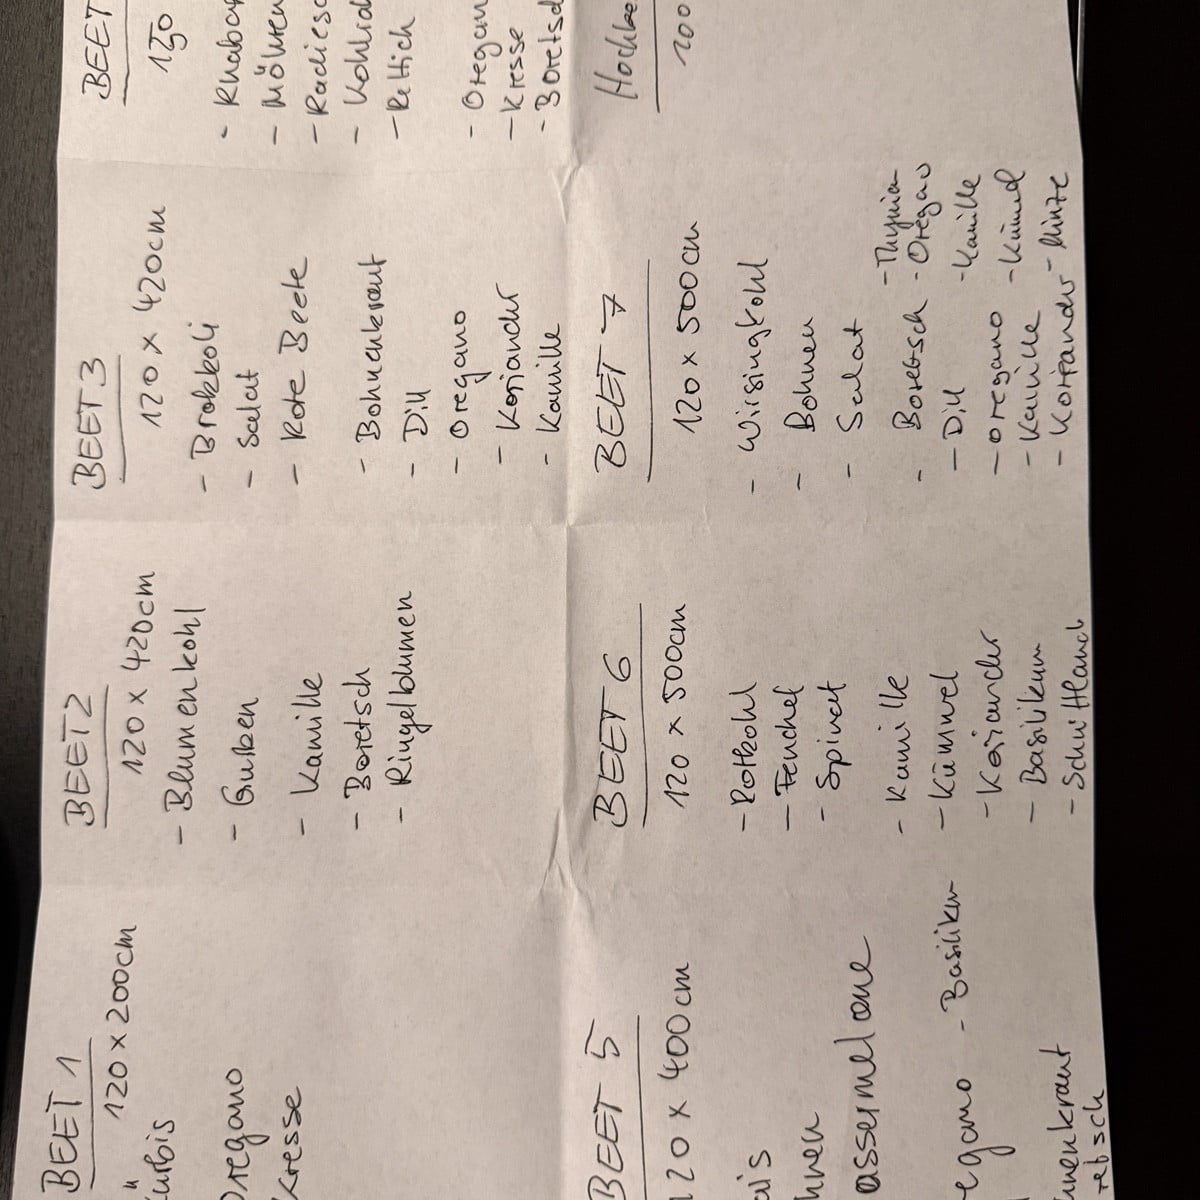 BEET 1
120 x 200cm
Kürbis
Oregano
Kresse
BEET 2
120 x 420cm
- Blumenkohl
- Gurken
- Kamille
- Boretsch
- Ringelblumen
BEET 3
120 x 420cm
- Brokkoli
- Salat
- Rote Beete
- Bohnenkraut
- Dill
- Oregano
- Koriander
- Kamille
BEET
150
- Rhabar
- Möhren
- Radiesc
- Kohlra
- Rettich
- Oregan
- Kresse
- Boretsc
BEET 5
120 x 400cm
ais
hnen
assermelone
egano - Basilikum
nenkraut
retsch
BEET 6
120 x 500cm
- Rotkohl
- Fenchel
- Spinat
- Kamille
- Kümmel
- Koriander
- Basilikum
- Schnittlauch
BEET 7
120 x 500cm
- Wirsingkohl
- Bohnen
- Salat
- Thymian
- Boretsch - Oregano
- Dill - Kamille
- Oregano - Kümmel
- Kamille
- Koriander - Minze
Hochbe
100